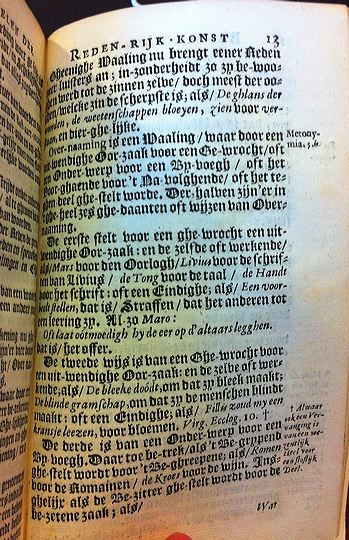 REDEN-RIJK-KONST 13
Gheenighe Waaling nu brengt eener Reden
luister aan; in-zonderheidt zo zy be-woo-
werd tot de zinnen zelve/ doch meest der oo-
/ welke zin de scherpste is; als/ De ghlans der
, de weetenschappen bloeyen, zien voor ver-
, en dier-ghelijke.
Over-naaming is een Waaling/ waar door een
uit-wendighe Oor-zaak voor een Ge-wrocht/ oft
Onder-werp voor een By-voegh/ oft het
voor-ghaende voor 't Na-volghende/ oft het te-
-deel ghe-stelt worde. Der-halven zijn'er in
't gheheel zes ghe-daanten oft wijzen van Over-
naaming.
Metony-
mia. 5.6.
De eerste stelt voor een ghe-wrocht een uit-
wendighe Oor-zaak: en de zelfde oft werkende/
als/ Mars voor den Oorlogh/ Livius voor de schrif-
ten van Livius/ de Tong voor de taal/ de Handt
voor het schrift: oft een Eindighe; als/ Een voor-
beelt stellen, dat is/ Straffen/ dat het anderen tot
een leering zy. Al-zo Maro:
Oft laat ootmoedigh hy de eer op d'altaars legghen.
dat is/ het offer.
De tweede wijs is van een Ghe-wrocht voor
een uit-wendighe Oor-zaak: en de zelve oft wer-
kende; als/ De bleeke doodt, om dat zy bleek maakt;
De blinde gramschap, om dat zy de menschen blindt
maakt: oft een Eindighe; als/ Fillis zond my een
kransje leezen, voor bloemen. Virg. Ecclog. 10. †
De derde is van een Onder-werp voor een
By-voegh. Waar toe be-trek/ als 't Be-grypend
ghe-stelt wordt voor 't Be-ghreepene; als/ Romen
voor de Romainen/ de Kroes voor de wijn. Ins-
ghelijx als de Be-zitter ghe-stelt wordt voor de
be-zetene zaak; als/
† Alwaar
ook een Ver-
vanging is
van een we-
zentlijk
voor een
stoflijk
Deel.
Wat